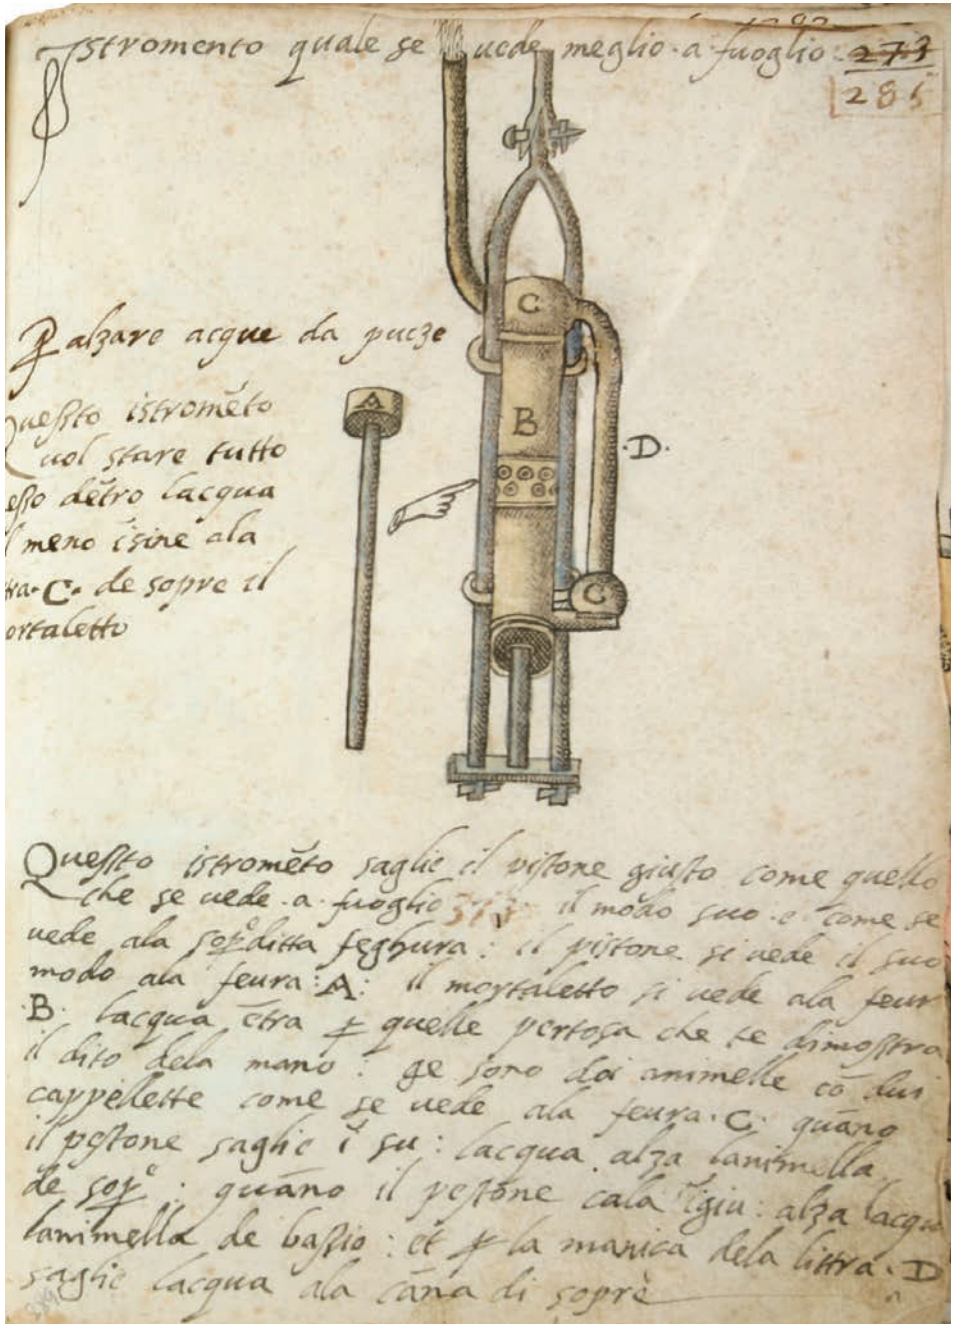 Istromento quale se uede meglio · a · fuoglio · 273
285
ꝑ alzare acque da pucze
Questo istromēto
uol stare tutto
esso dētro lacqua
meno īsine ala
· C · de sopre il
ortaletto
A
C
B
· D ·
C
Questo istromēto saglie il pistone giusto come quello
che se uede · a · fuoglio il modo suo · e come se
uede ala ditta feghura : il pistone si uede il suo
modo ala feura : A : il mortaletto si uede ala feur
· B · lacqua ētra ꝑ quelle pertosa che te dimostra
il dito dela mano : ge sono doi animelle cō dui
cappellette come se uede ala feura · C · quāno
il pestone saglie ī su : lacqua alza lanimella
de : quāno il pestone cala īgiu : alza lacqua
lanimella de bassio : et ꝑ la manica dela littra · D
saglie lacqua ala cāna di sopre